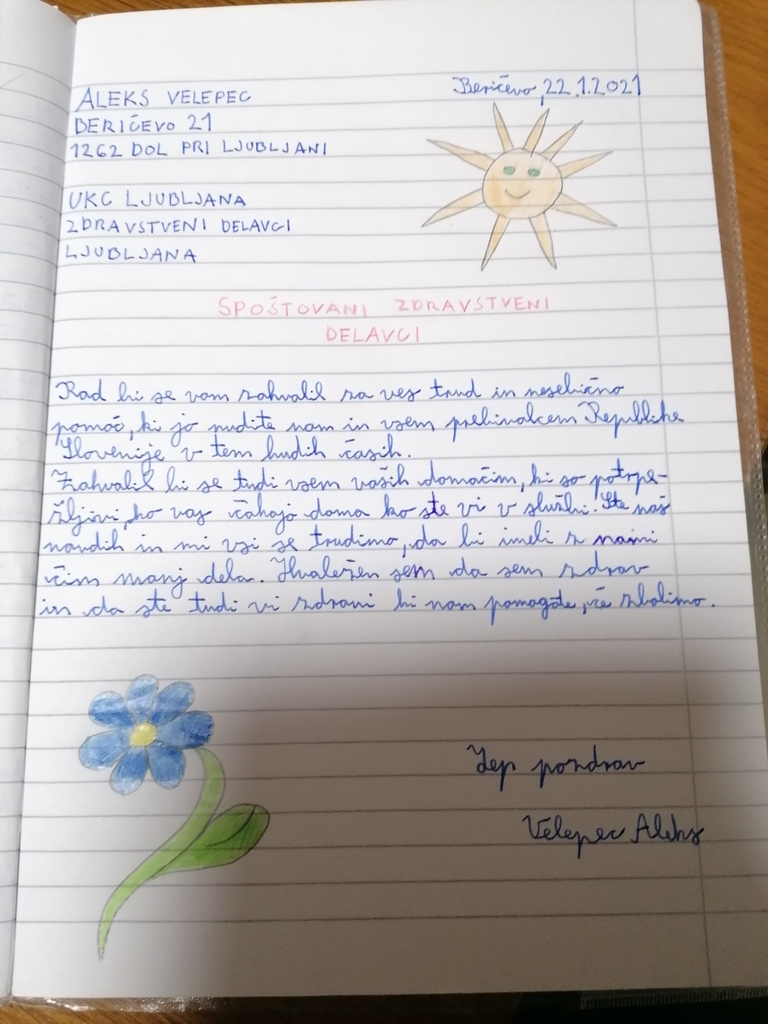 ALEKS VELEPEC
Beričevo, 22.1.2021
BERIČEVO 21
1262 DOL PRI LJUBLJANI
UKC LJUBLJANA
ZDRAVSTVENI DELAVCI
LJUBLJANA
SPOŠTOVANI ZDRAVSTVENI
DELAVCI
Rad bi se vam zahvalil za ves trud in nesebično
pomoč, ki jo nudite nam in vsem prebivalcem Republike
Slovenije v tem hudih časih.
Zahvalil bi se tudi vsem vaših domačim, ki so potrpe-
žljivi, ko vas čakajo doma ko ste vi v službi. Ste nas
navdih in mi vsi se trudimo, da bi imeli z nami
čim manj dela. Hvaležen sem da sem zdrav
in da ste tudi vi zdravi ki nam pomagate, če zbolimo.
Lep pozdrav
Velepec Aleks